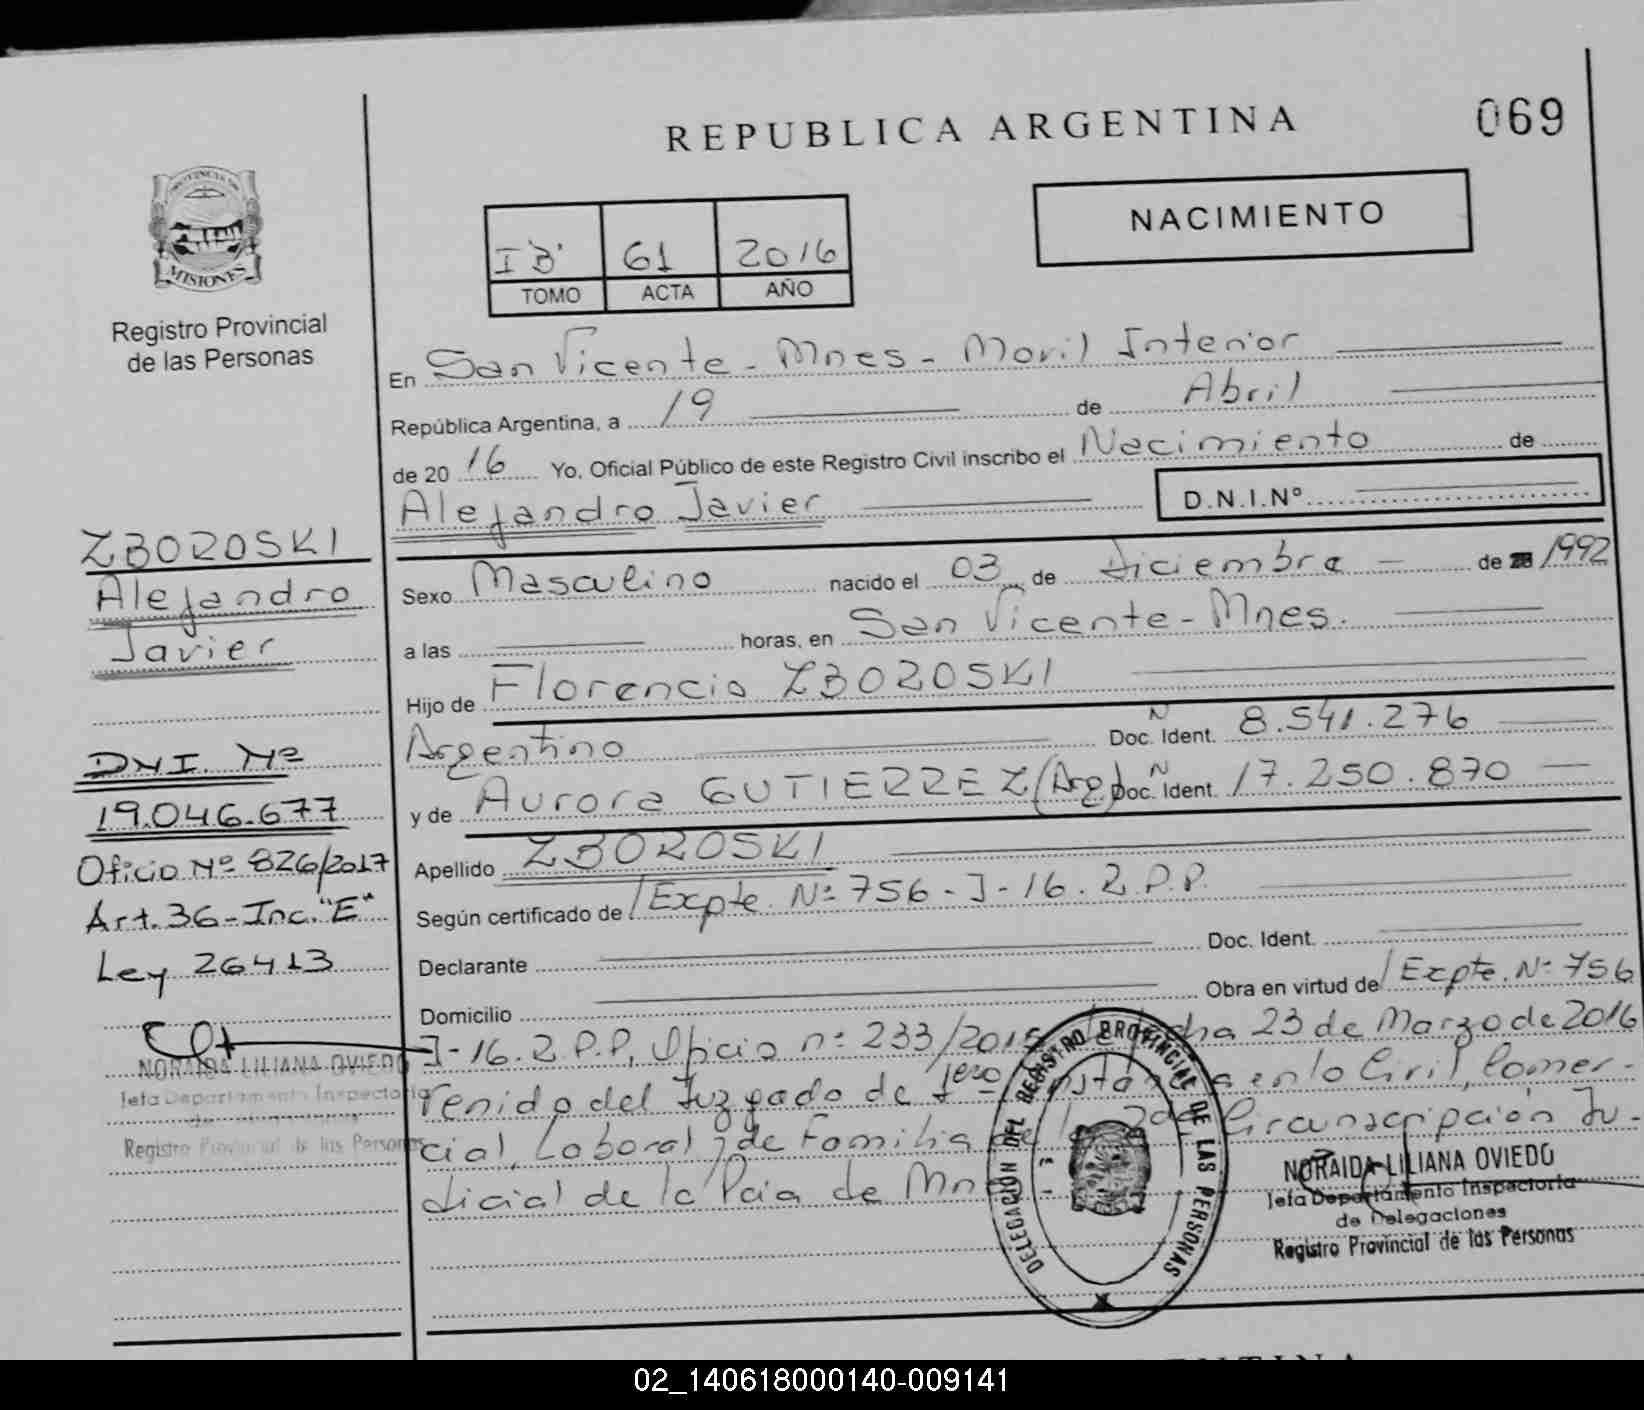 REPUBLICA ARGENTINA
069
PROVINCIA DE
MISIONES
Registro Provincial
de las Personas
NACIMIENTO
I B' 61 2016
TOMO ACTA AÑO
En San Vicente - Mnes - Movil Interior
República Argentina, a 19 de Abril
de 20 16 Yo, Oficial Público de este Registro Civil inscribo el Nacimiento de
Alejandro Javier D.N.I.Nº
Sexo Masculino nacido el 03 de diciembre de 1992
a las horas, en San Vicente - Mnes.
Hijo de Florencio ZBOROSKI
Argentino Doc. Nº Ident. 8.541.276
y de Aurora GUTIERREZ (Arg) Doc. Nº Ident. 17.250.870
Apellido ZBOROSKI
Según certificado de / Expte. Nº 756-J-16.2.P.P.
Declarante Doc. Ident.
Domicilio Obra en virtud de / Expte. Nº 756
J-16.2.P.P, Oficio nº 233/2015 fecha 23 de Marzo de 2016
venido del Juzgado de 1era Instancia en lo Civil, Comer-
cial, Laboral y de Familia de la 2da Circunscripción Ju-
dicial de la Pcia de Mnes
ZBOROSKI
Alejandro
Javier
DNI. Nº
19.046.677
Oficio Nº 826/2017
Art. 36 - Inc. "E"
Ley 26413
NORAIDA LILIANA OVIEDO
Jefa Departamento Inspectoria
Registro Provincial de las Personas
DELEGACIÓN DEL REGISTRO PROVINCIAL DE LAS PERSONAS
NORAIDA LILIANA OVIEDO
Jefa Departamento Inspectoria
de Delegaciones
Registro Provincial de las Personas
02_140618000140-009141